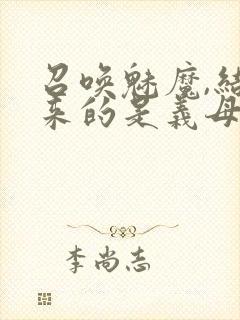 召唤魅魔,结
来的是义母
李尚志